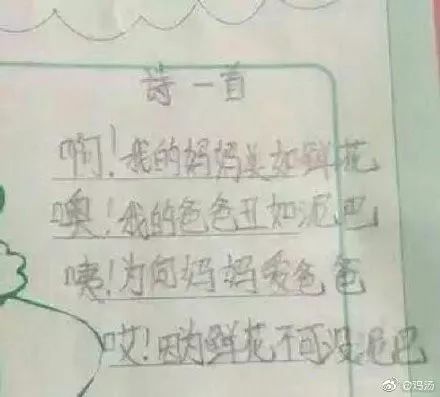 诗一首
啊!我的妈妈美如鲜花
噢!我的爸爸丑如泥巴
咦!为何妈妈爱爸爸
哎!因为鲜花不可没泥巴
@鸡汤